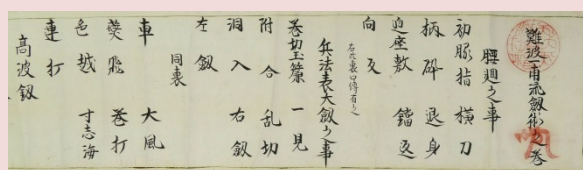 難波一甫流劔術之巻
腰廻之事
初豚指 横刀
柄砕 退身
近座敷 鐺返
向及
右六裏口傳有之
兵法表大劔之事
巻切玉簾 一見
附合 乱切
洞入 右劔
左劔
同裏
車 大風
獎飛 巻打
色越 寸志海
連打
高波劔